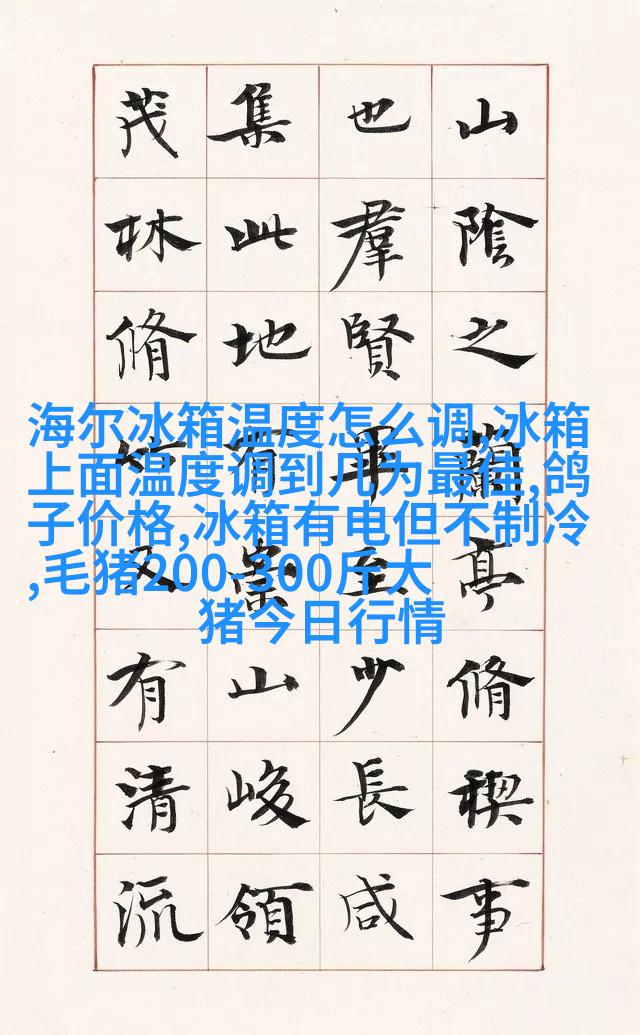 山陰之蘭亭脩稧事
也羣賢畢至少長咸
集此地有崇山峻領
茂林脩竹又有清流
海尔冰箱温度怎么调,冰箱
上面温度调到几为最佳,鸽
子价格,冰箱有电但不制冷
,毛猪200-300斤大
猪今日行情